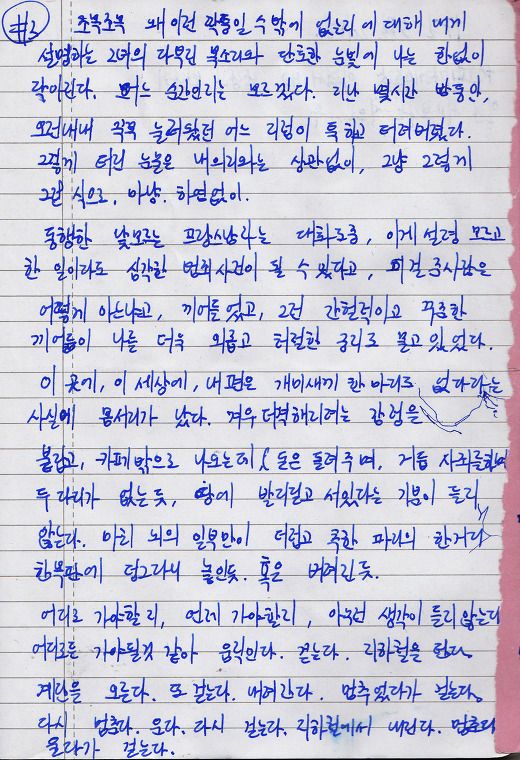 #3
조목조목 왜 이런 곽통일 수밖에 없는지에 대해 내게
설명하는 그녀의 다부진 목소리와 단호한 눈빛에 나는 한없이
작아진다. 어느 순간인지는 모르겠다. 지난 몇시간 반동안,
오전내내 꾹꾹 눌러뒀던 어느 지점이 툭하고 터져버렸다.
그렇게 터진 눈물은 내의지와는 상관없이, 그냥 그렇게
그런 식으로, 마냥, 하염없이.
동행한 낯모르는 프랑스남자는 대화도중, 이게 설령 모르고
한 일이라도 심각한 범죄사건이 될 수 있다고, 피검증사람은
어떻게 아느냐고, 끼어들었고, 그런 간헐적이고 꾸준한
끼어듦이 나를 더욱 외롭고 처절한 궁지로 몰고 있었다.
이 곳에, 이 세상에, 내 편은 개미새끼 한 마리도 없다라는
사실에 몸서리가 났다. 겨우 더 해지려는 감정을
붙잡고, 카페밖으로 나오는데 돈은 돌려주며, 거듭 사죄를하며
두 다리가 없는 듯, 땅에 발 딛고 서있다는 기분이 들지
않는다. 마치 뇌의 일부만이 더럽고 죽한 파리의 한거리
한복판에 덩그러니 놓인듯. 혹은 버려진 듯.
어디로 가야할지, 언제 가야할지, 아무런 생각이 들지않는다
어디로든 가야될것 같아 움직인다. 걷는다. 지하철을 탄다.
계단을 오른다. 또 걷는다. 내려간다. 멈추었다가 걷는다.
다시 멈춘다. 운다. 다시 걷는다. 지하철에서 내린다. 멈춘다
울다가 걷는다.